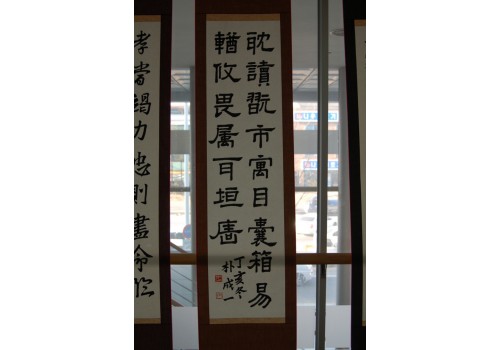 耽讀翫市寓目囊箱易
輶攸畏属耳垣廧
丁亥冬
朴成一
孝當竭力忠則盡命臨